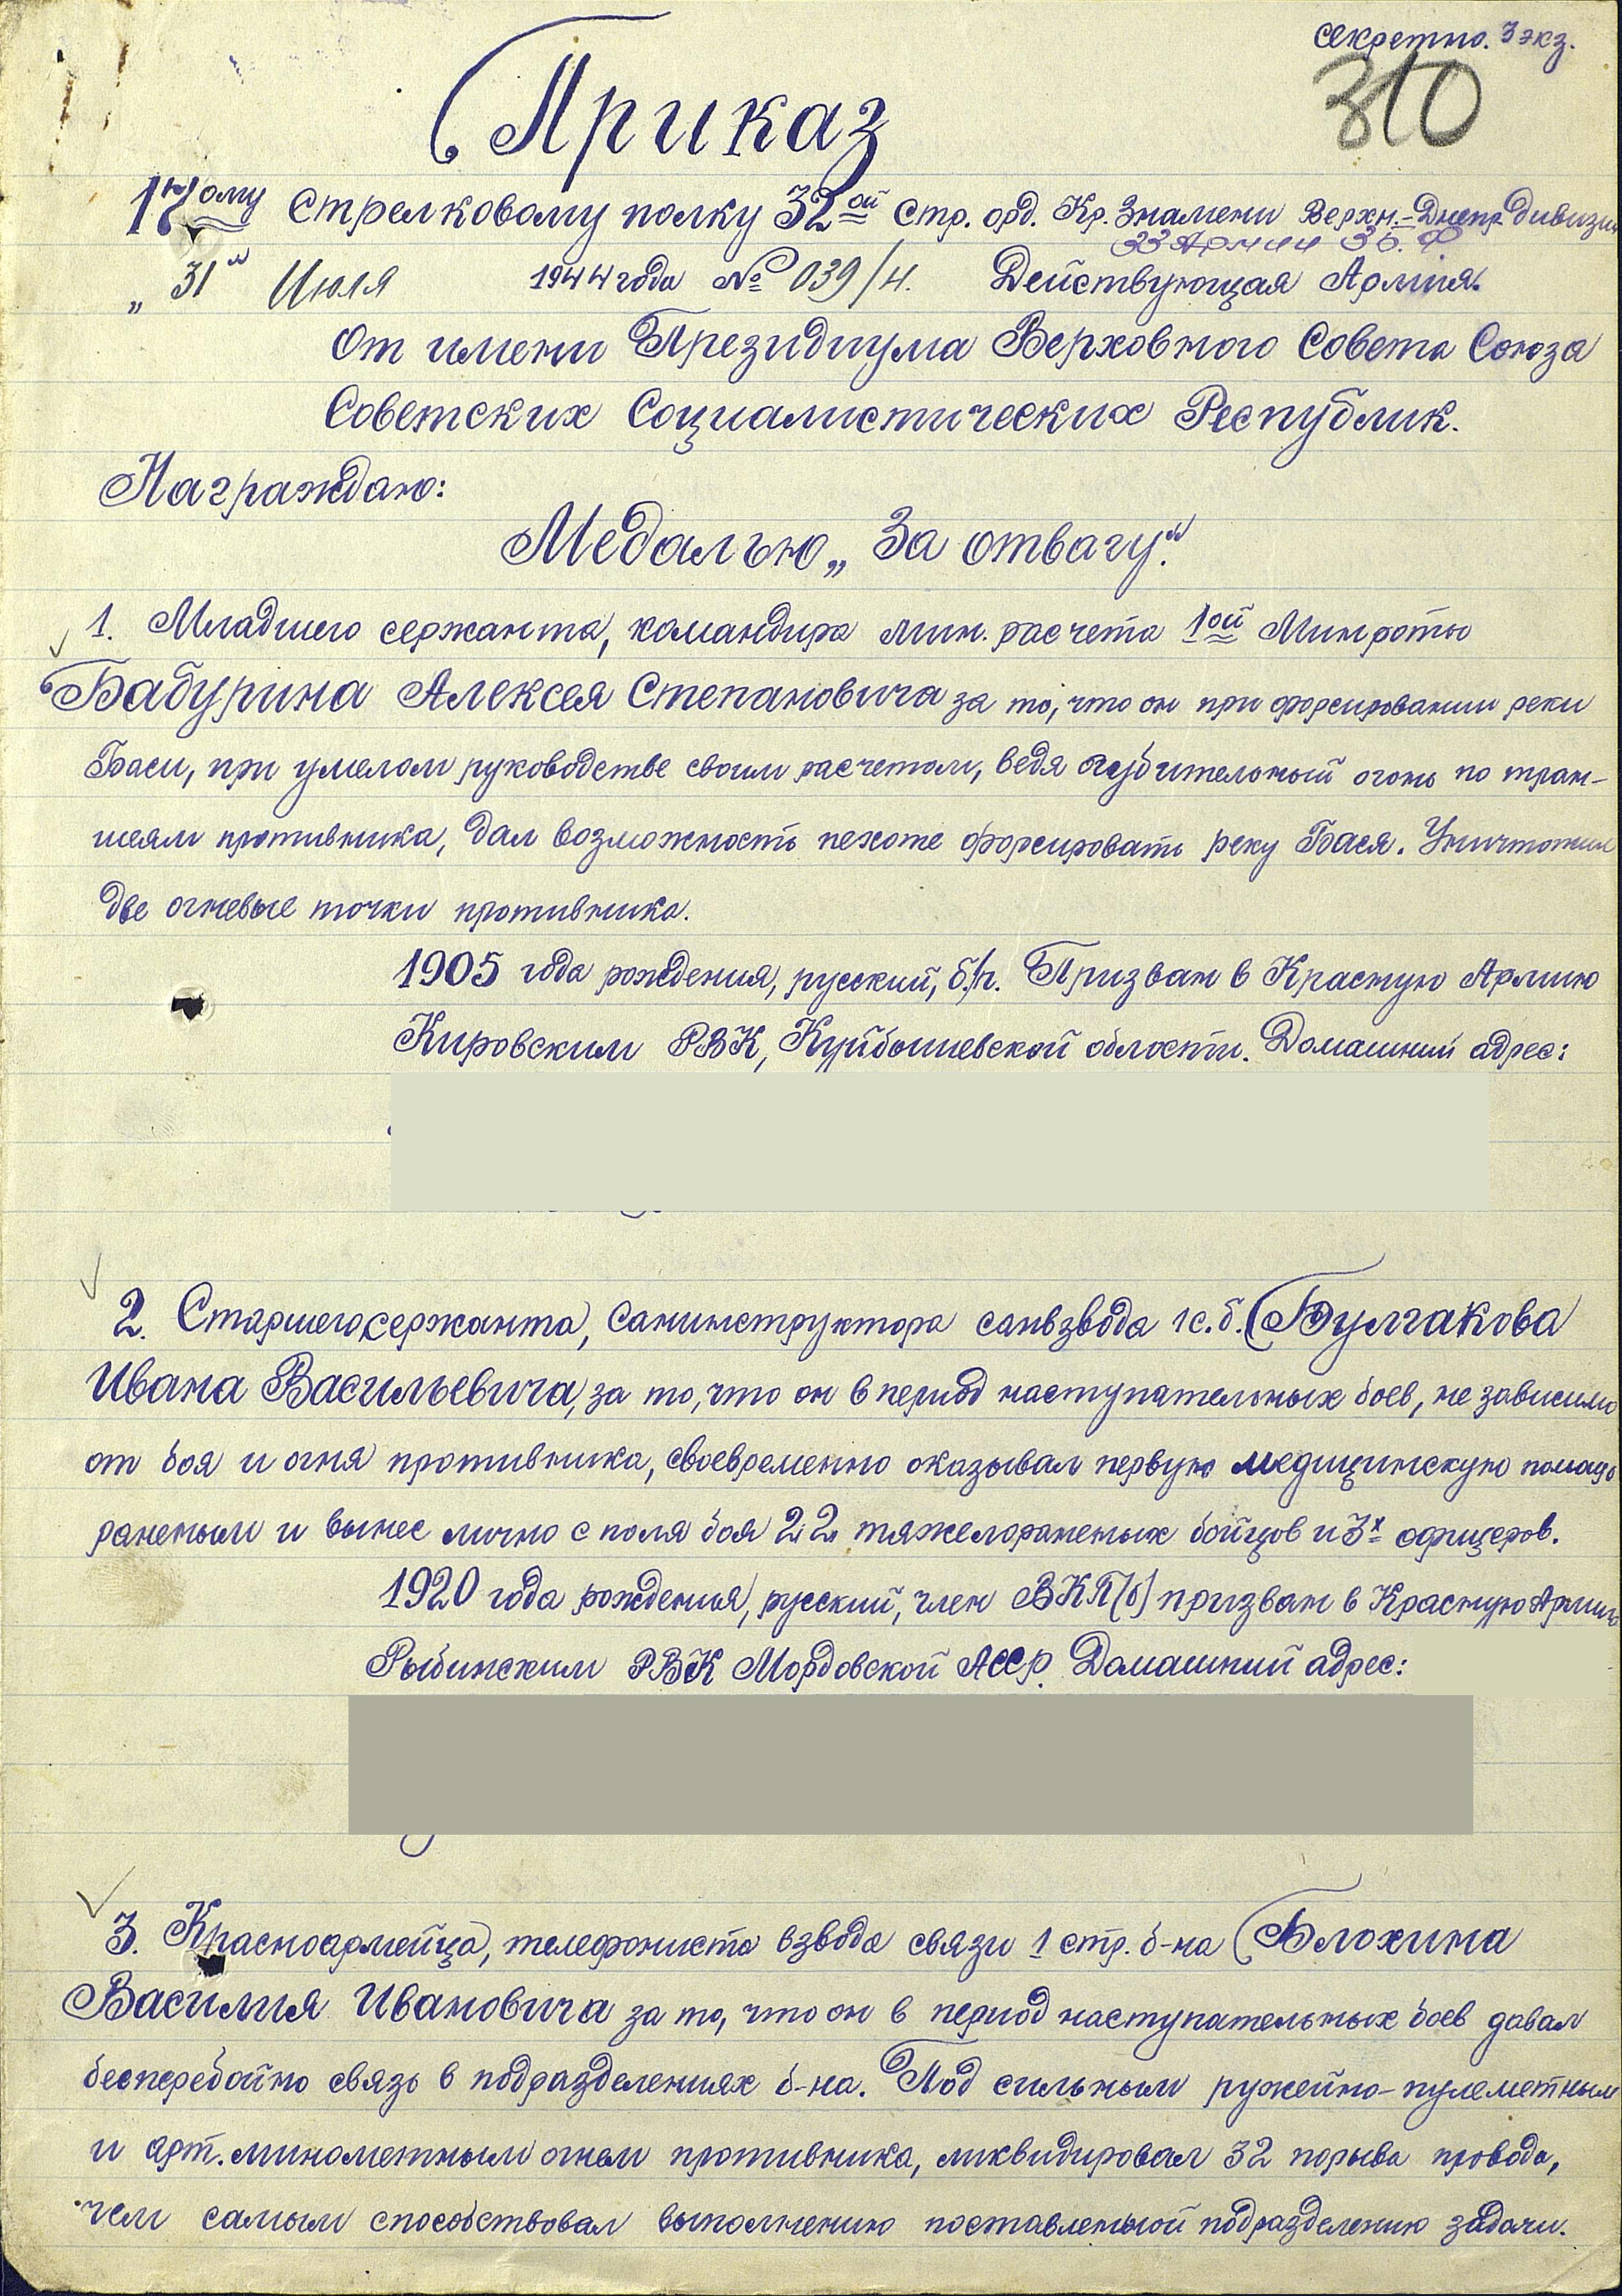 секретно. 3 экз.
310
Приказ
17ому стрелковому полку 32ой стр. орд. Кр. Знамени Верхн.-Днепр. Дивизии
33 Армии 3б. Ф
„31" Июля 1944 года № 039/н. Действующая Армия.
От имени Президиума Верховного Совета Союза
Советских Социалистических Республик.
Награждаю:
Медалью „За отвагу".
1. Младшего сержанта, командира мин. расчета 1ой Минроты
Бабурина Алексея Степановича за то, что он при форсировании реки
Баси, при умелом руководстве своим расчетом, ведя губительный огонь по тран-
шеям противника, дал возможность пехоте форсировать реку Бася. Уничтожил
две огневые точки противника.
1905 года рождения, русский, б/п. Призван в Красную Армию
Кировским РВК, Куйбышевской области. Домашний адрес:
2. Старшего сержанта, санинструктора санвзвода 1с.б. Булгакова
Ивана Васильевича, за то, что он в период наступательных боев, не зависимо
от боя и огня противника, своевременно оказывал первую медицинскую помощь
раненым и вынес лично с поля боя 22 тяжелораненых бойцов и 3х офицеров.
1920 года рождения, русский, член ВКП(б) призван в Красную Армию
Рыбинским РВК Мордовской АССР. Домашний адрес:
3. Красноармейца, телефониста взвода связи 1 стр. б-на Блохина
Василия Ивановича за то, что он в период наступательных боев давал
бесперебойно связь в подразделениях б-на. Под сильным ружейно-пулеметным
и арт. минометным огнем противника, ликвидировал 32 порыва провода,
чем самым способствовал выполнению поставленной подразделению задачи.